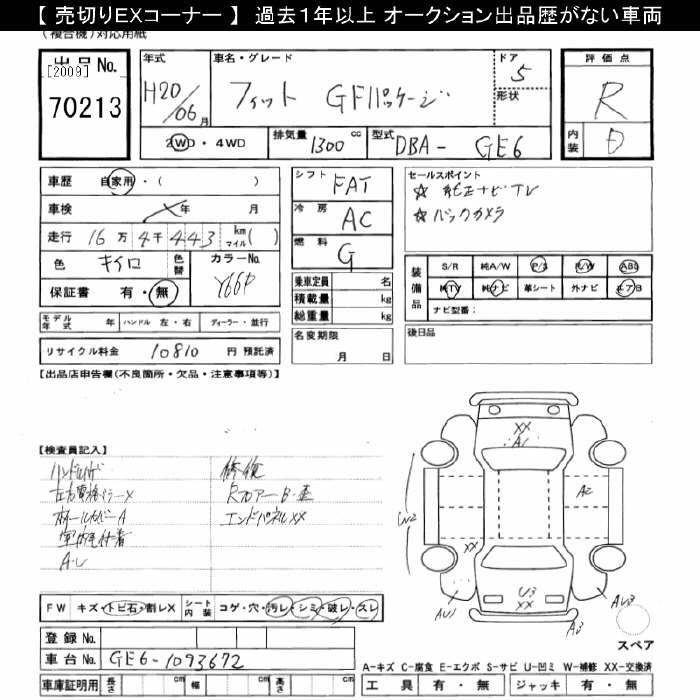 【 売切りEXコーナー 】 過去1年以上 オークション出品歴がない車両
(複合機)対応用紙
出品No.
[2009]
70213
年式
H20/06月
車名・グレード
フィット GFパッケージ
ドア
5
形状
評価点
R
内装
D
2WD・4WD
排気量 1300 cc
型式 DBA- GE6
車歴 自家用・( )
車検 年 月
走行 16万4千443 km マイル( )
色 キイロ
色替
カラーNo. Y66P
保証書 有・無
シフト FAT
冷房 AC
燃料 G
乗車定員 名
積載量 kg
総重量 kg
セールスポイント
☆ 純正ナビTV
☆ バックカメラ
装備品
S/R 純A/W P/S P/W ABS
純TV 純ナビ 革シート 外ナビ エアB
ナビ型番:
モデル年式 年 ハンドル 左・右 ディーラー・並行
名変期限
月 日
後日品
リサイクル料金 10810 円 預託済
【出品店申告欄(不良箇所・欠品・注意事項等)】
【検査員記入】
ハンドルスレ
左右電格ミラーX
ホイールカバーA
室内毛付着
A・U
修復
Rフロアー B・歪
エンドパネルXX
XX
A1
A2
W2
XX
U3
XX
AU1
AU3
A3
スペア
FW キズ・トビ石・割レX
シート内装 コゲ・穴・汚レ・シミ・破レ・スレ
登録No.
車台No. GE6-1093672
車庫証明用 長さ cm 幅 cm 高さ cm
A-キズ C-腐食 E-エクボ S-サビ U-凹ミ W-補修 XX-交換済
工具 有・無 ジャッキ 有・無